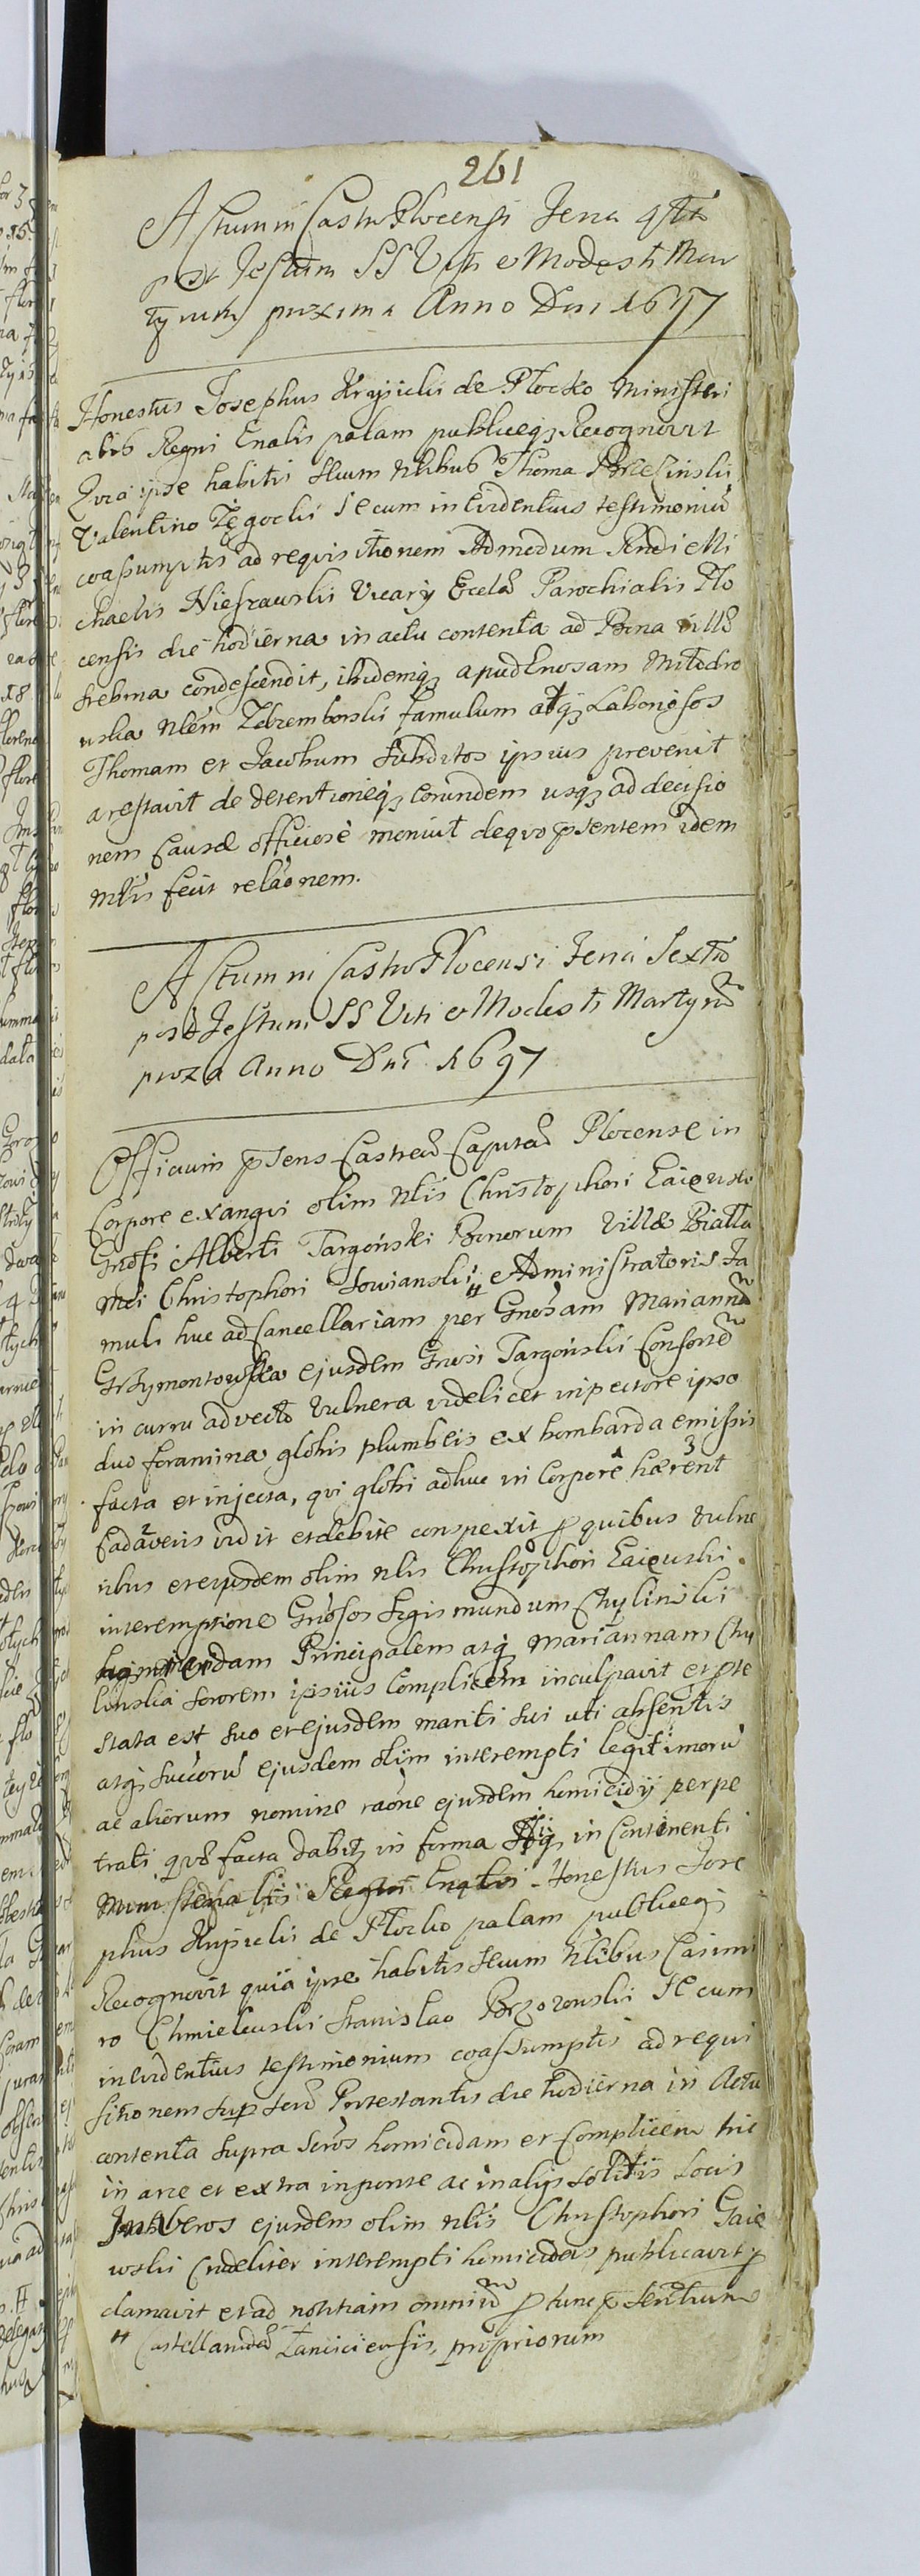 261
Actum in Castro Plocensi Feria 4ta
post Festum SS Viti et Modesti Mar
tyrum proxima Anno Dni 1697
Honestus Josephus Krysicki de Plocko Ministeri
alis Regni Gnalis palam publiceq; Recognovit
Quia ipse habitis secum Nlibus Thoma Brzezinski
Valentino Zęgocki secum in Evidentius testimoniu
coassumptis ad requisitionem Admodum Rndi Mi
chaelis Nieszawski Vicarij Eccla Parochialis Plo
censis die hodierna in actu contenta ad Bona villæ
Srebrna condescendit, ibidemq; apud Gnosam Młodro
wska Nlem Zebrzemborski famulum atq; Laboriosos
Thomam et Jacobum subditos ipsius prevenit
arestavit de detentioneq; Eorundem usq; ad decisio
nem Causæ officiose moniut de quo pntem idem
Mlis fecit relãonem.
Actum in Castro Plocensi Feria Sexta
post Festum SS Viti et Modesti Martyru
proxa Anno Dni 1697
Officium psens Castren Capitan Plocense in
Corpore exangvi olim Nlis Christophori Gaiewski
Gnosi Alberti Targoński Bonorum Villæ Białła
Mci Christophori Łowianski # Administratoris Fa
muli huc ad Cancellariam per Gnosam Marianna
Grzymontowska ejusdem Gnosi Targoński Consorte
in curru advecto Vulnera videlicet in pectore ipso
duo foramina globis plumbeis ex bombarda emissis
facta et injecta, qvi globi adhuc in Corpore 1 hærent 3
Cadaveris 2 vidit et debite conspexit p quibus vulne
ribus et ejusdem olim Nlis Christophori Gaiewski
interemptione Gnosos Sigismundum Chylinski
homicidam Principalem atq; Mariannam Chy
linska sororem ipsius Complicem inculpavit et pte
stata est suo et ejusdem mariti sui uti absentis
atq; succoru ejusdem olim interempti legitimoru
ac aliorum nomine raone ejusdem homicidij perpe
trati quo facta dabitz in forma in Continenti
Ministerialis Regni Gnalis Honestus Jose
phus Krysicki de Płocko palam publiceq;
Recognovit quia ipse habitis secum Nlibus Casimi
ro Chmielewski Stanislao Brzozowski secum
in evidentius testimonium coassumptis ad requi
sitionem sup scri Protestantis die hodierna in Actu
contenta supra scros homicidam et Complicem hic
in arce et extra in ponte ac in alijs solitis Locis
Veros ejusdem olim Nlis Christophori Gaie
wski crudeliter interempti homicidas publicavit p
clamavit et ad notitiam omniu p tunc p sentium
# Castellanidæ Lanciciensis, propriorum